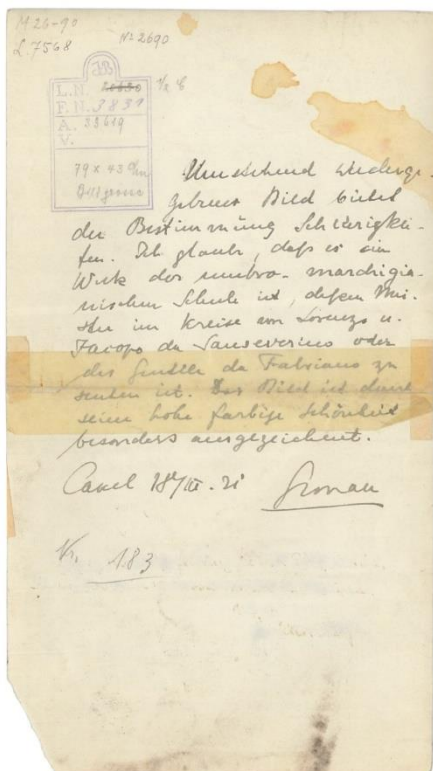 M 26-90
L.7568
No 2690
L.N.
F.N. 3831
A. 33619
V.
79 x 43 cm
Umstehend wiederge-
gebenes Bild bietet
der Bestimmung Schwierigkei-
ten. Ich glaube, daß es ein
Werk der umbro-marchigia-
nischen Schule ist, dessen Mei-
ster im Kreise von Lorenzo u.
Jacopo da Sanseverino oder
des Gentile da Fabriano zu
suchen ist. Das Bild ist durch
seine hohe farbige Schönheit
besonders ausgezeichnet.
Cassel 18/III. 21
Gronau
Nr. 183